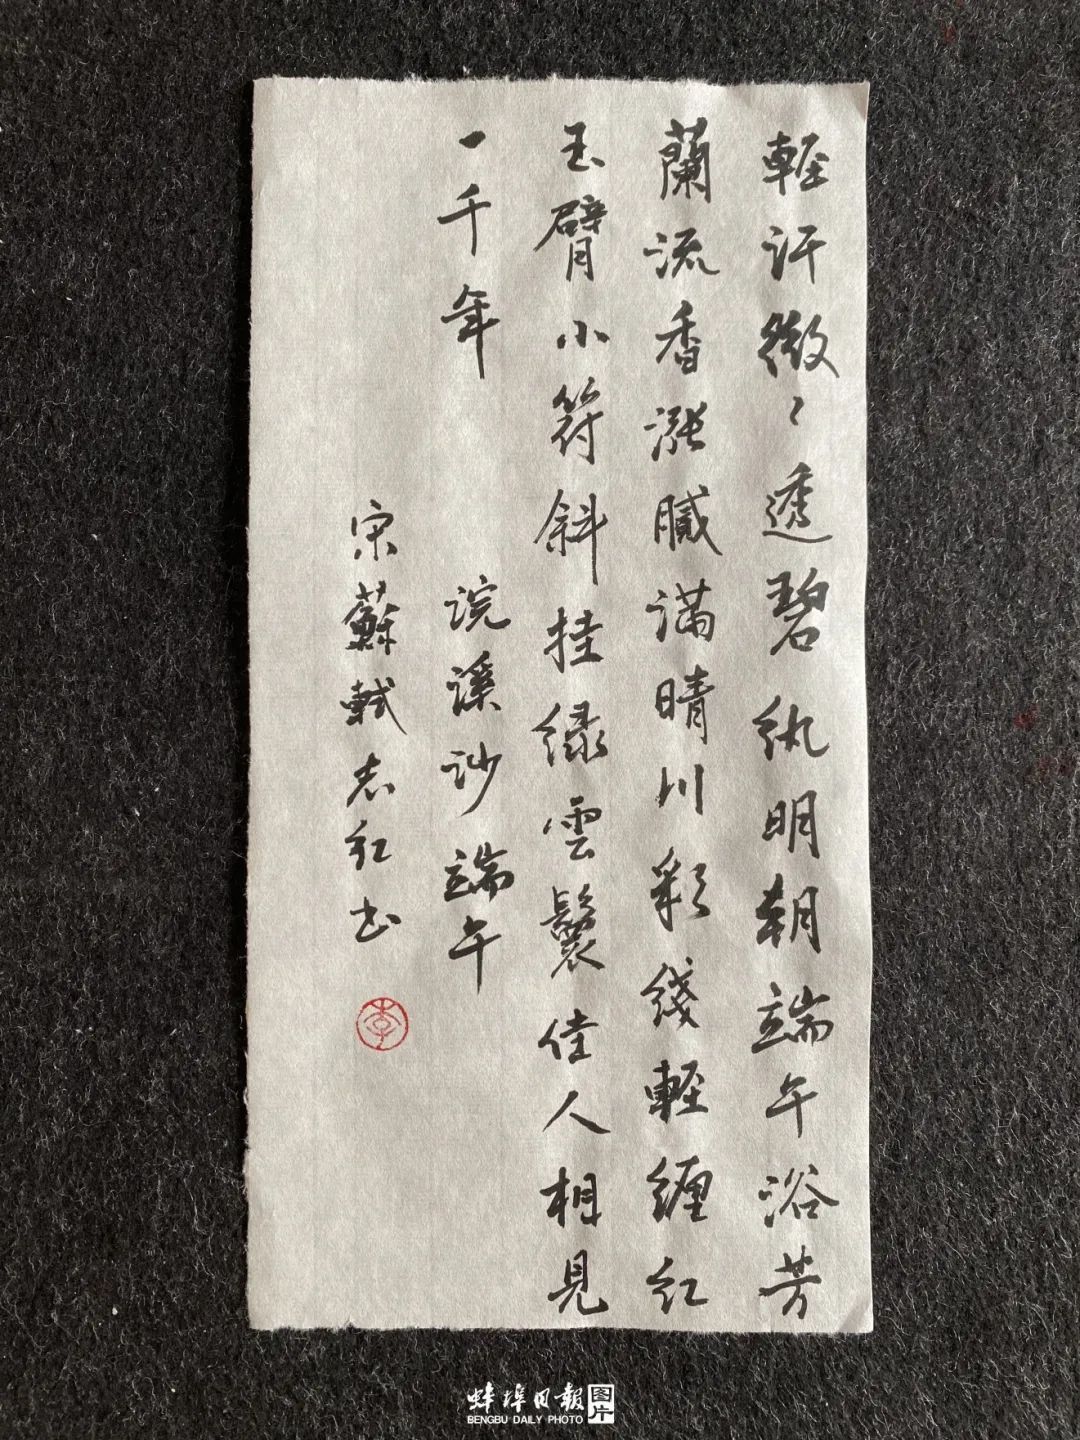 輕汗微〻透碧紈明朝端午浴芳
蘭流香漲膩满晴川彩线輕缠红
玉臂小符斜挂緑雲鬟佳人相見
一千年
浣溪沙端午
宋蘇軾志红书
李
蚌埠日報 图片
BENGBU DAILY PHOTO